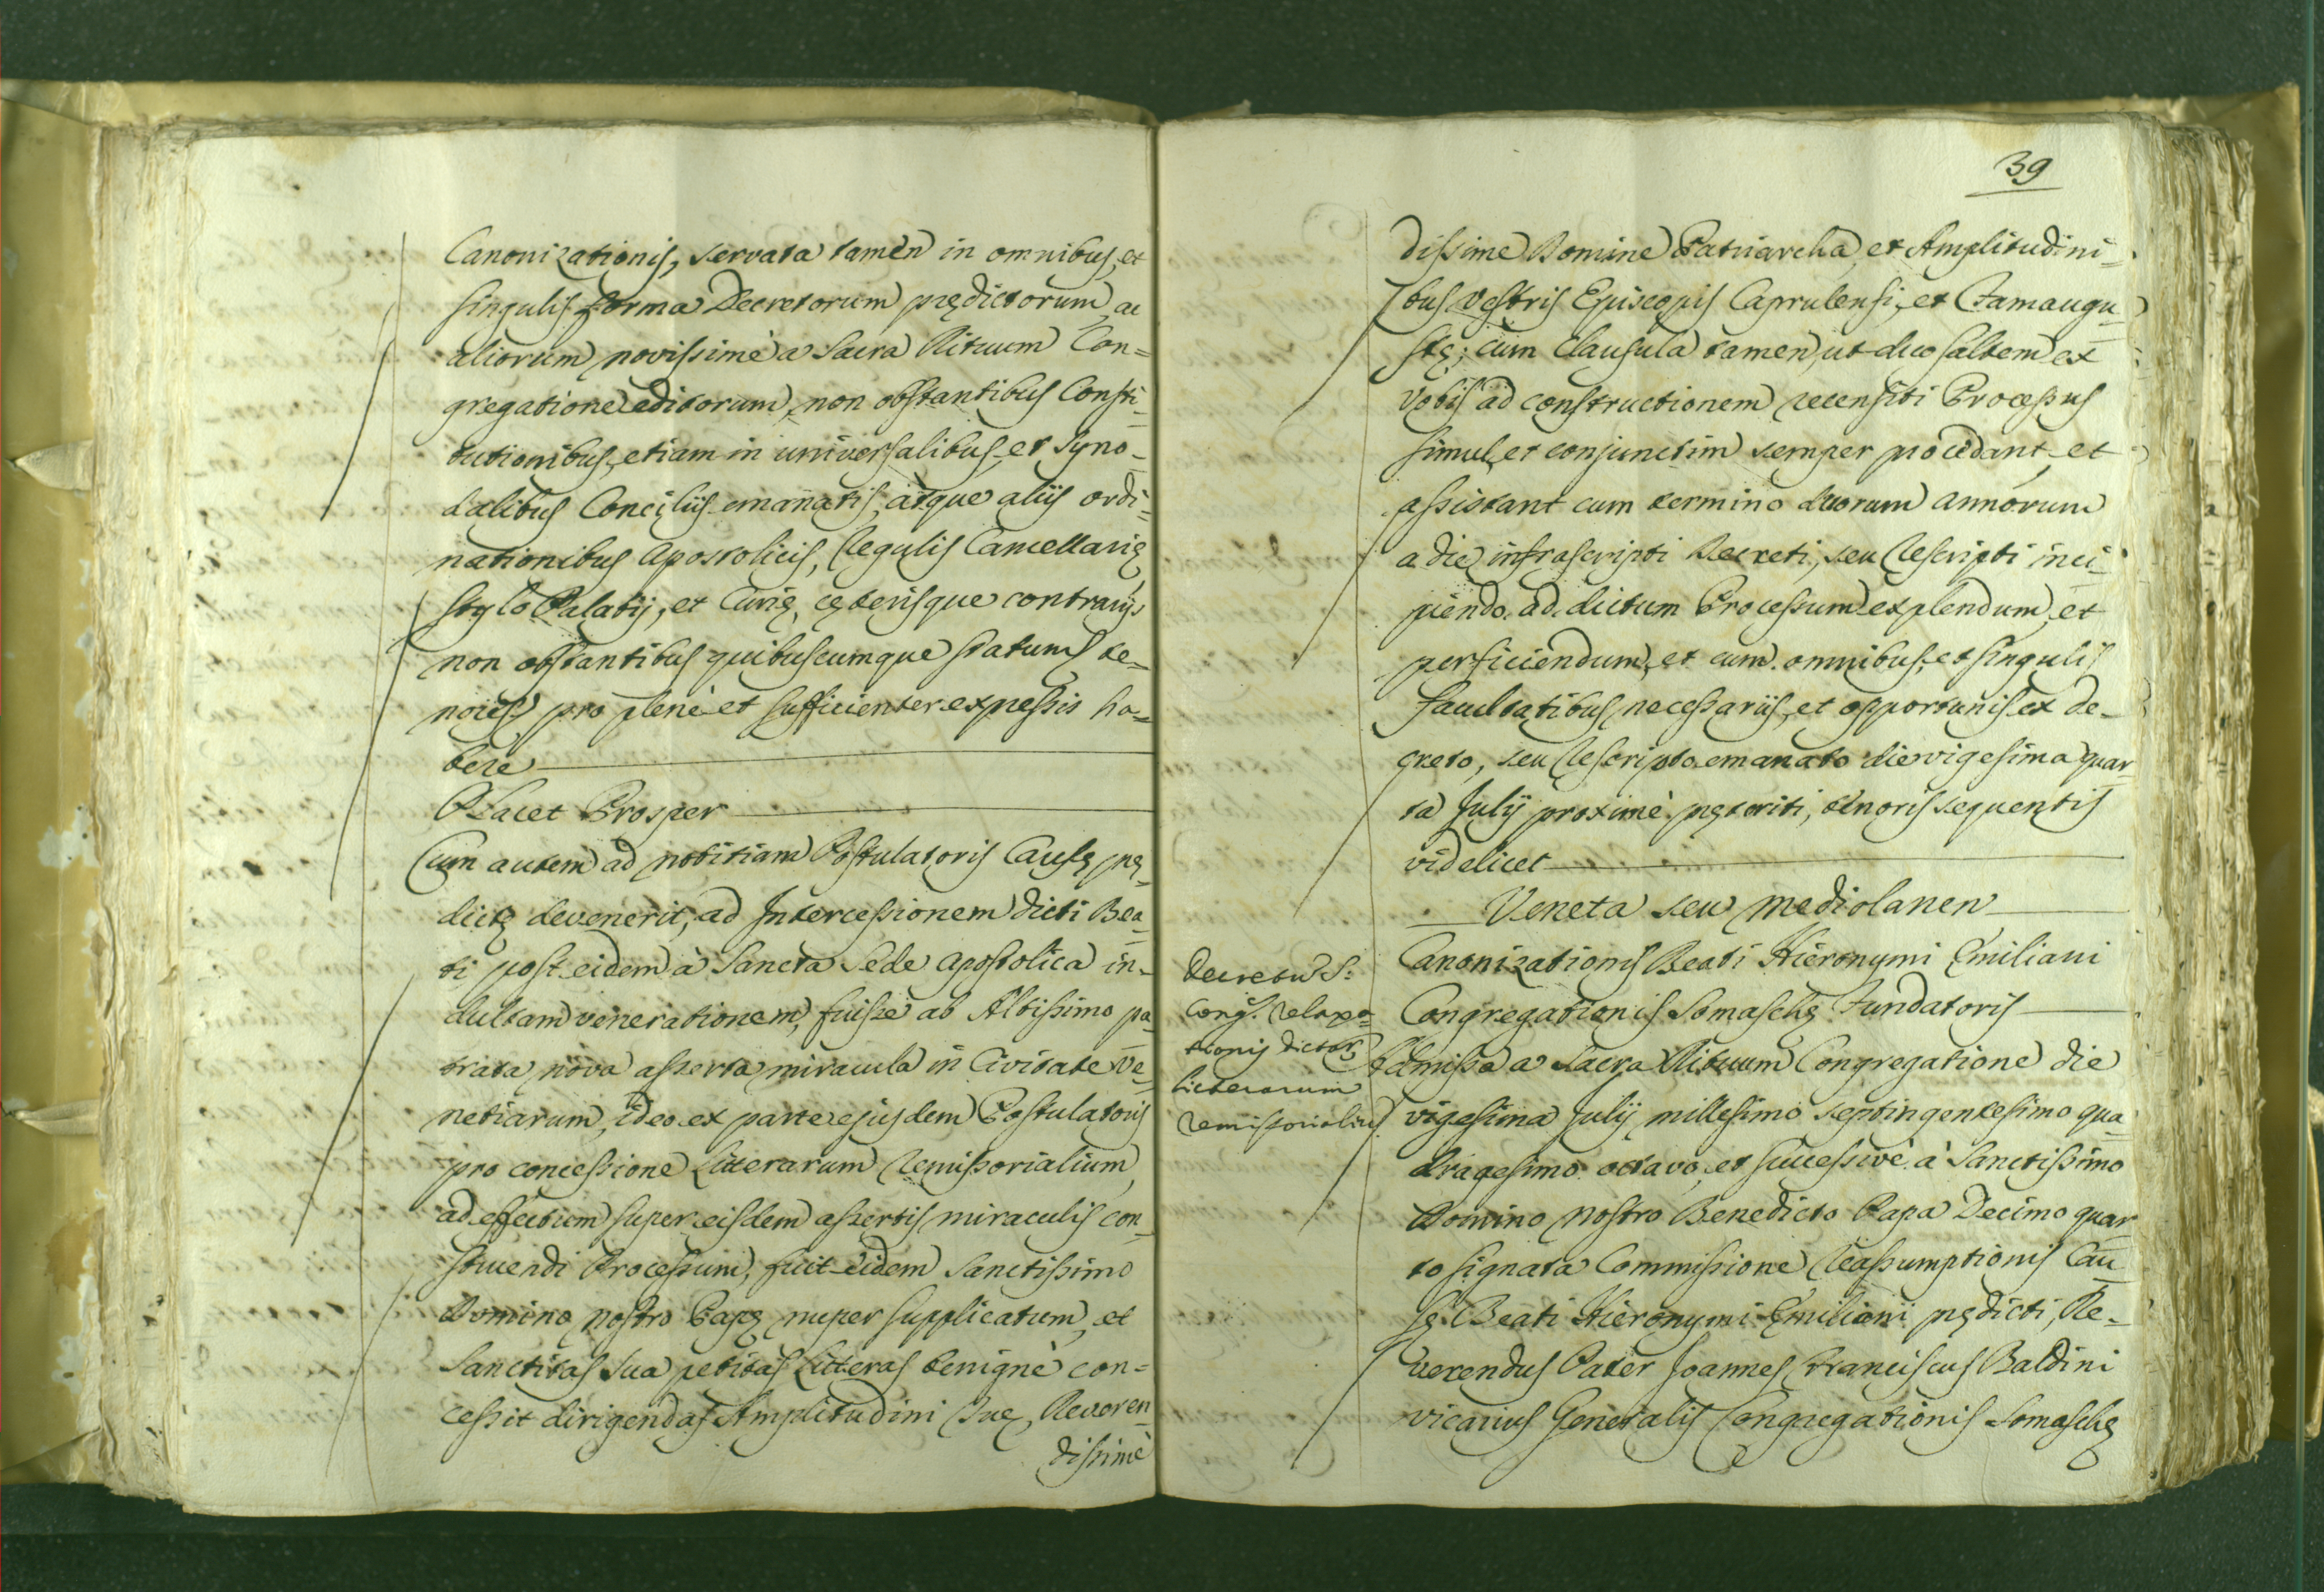 Canonizationis, servata tamen in omnibus, et
singulis forma Decretorum prędictorum, ac
aliorum novissimè a Sacra Rituum Con=
gregatione editorum, non obstantibus Consti=
tutionibus, etiam in universalibus, et Syno=
dalibus Concilijs emanatis, atque alijs ordi=
nationibus Apostolicis, Regulis Cancellarię
stylo Palatij, et Curię, cęterisque contrarijs
non obstantibus quibuscumque statum, te=
nores pro plenè et sufficienter expressis ha=
bere
Placet Prosper
Cum autem ad notitiam Postulatoris Causę prę=
dictę devenerit, ad Intercessionem dicti Bea=
ti post eidem à Sancta Sede Apostolica in=
dultam venerationem, fuisse ab Altissimo pa=
trata nova asserta miracula in Civitate Ve=
netiarum, ideo ex parte ejusdem Postulatoris
pro concessione Litterarum Remissorialium,
ad effectum super eisdem assertis miraculis con=
struendi Processum, fuit eidem Sanctissimo
Domino nostro Papę nuper supplicatum, et
Sanctitas Sua petitas Litteras benignè con=
cessit dirigendas Amplitudini Suę, Reveren=
dissimè
39
dissime Domine Patriarcha, et Amplitudini=
bus Vestris Episcopis Caprulensi, et Famaugu=
stę; cum Clausula tamen, ut duo saltem ex
Vobis ad constructionem recensiti Processus
simul, et conjunctim semper procedant, et
assistant cum termino duorum annorum
a die infrascripti Decreti, seu Rescripti inci=
piendo ad dictum Processum explendum, et
perficiendum, et cum omnibus, et singulis
facultatibus necessarijs, et opportunis ex de=
creto, seu Rescripto emanato die vigesima quar=
ta Julij proximè pręteriti, tenoris sequentis
videlicet
Veneta seu Mediolanen
Canonizationis Beati Hieronymi Emiliani
Congregationis Somaschę Fundatoris
Decretum S:
Cong. relaxa=
tionis dictar
Litterarum
remissorialium
Admissa a Sacra Rituum Congregatione die
vigesima Julij millesimo septingentesimo qua=
dragesimo octavo, et successivè à Sanctissimo
Domino nostro Benedicto Papa Decimo quar=
to signata Commissione Reassumptionis Cau=
sę Beati Hieronymi Emiliani prędicti, Re=
verendus Pater Joannes Franciscus Baldini
vicarius Generalis Congregationis Somaschę